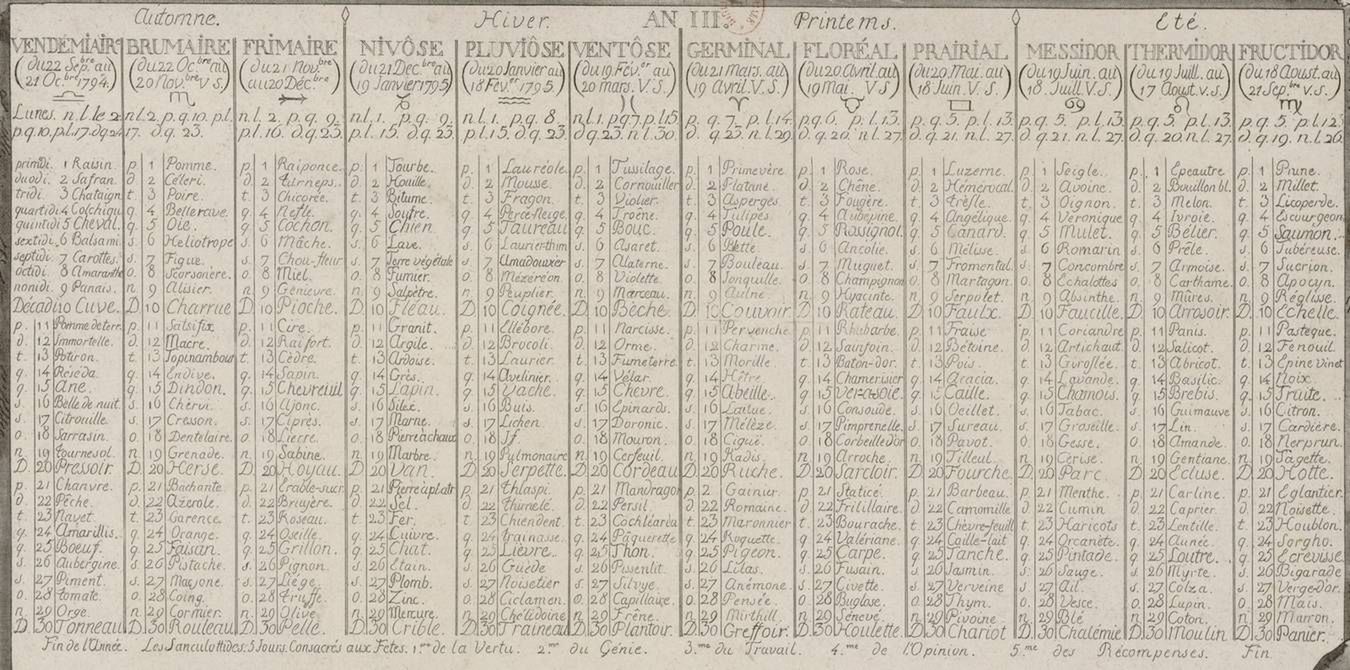 Automne. Hiver. AN III. Printems. Eté.
VENDEMIAIR
(du 22 Sep.bre au
21 Oc.bre 1794.)
Lunes. n.l. le 2.
p.q. 10. pl. 17. d.q. 24
primdi. 1 Raisin.
duodi. 2 Safran.
tridi. 3 Chataign
quartidi 4 Colchiqu
quintidi 5 Cheval.
sextidi. 6 Balsami
septidi. 7 Carottes.
octidi. 8 Amaranthe
nonidi. 9 Panais.
Décadi 10 Cuve.
p. 11 Pomme de terr.
d. 12 Immortelle.
t. 13 Potiron.
q. 14 Réséda.
q. 15 Ane.
s. 16 Belle de nuit.
s. 17 Citrouille.
o. 18 Sarrasin.
n. 19 Tournesol.
D. 20 Pressoir.
p. 21 Chanvre.
d. 22 Pêche.
t. 23 Navet.
q. 24 Amarillis.
q. 25 Boeuf.
s. 26 Aubergine.
s. 27 Piment.
o. 28 Tomate.
n. 29 Orge.
D. 30 Tonneau
BRUMAIRE
(du 22 Oc.bre au
20 Nov.bre V S.)
n.l. 2. p.q. 10. p.l.
17. d.q. 23.
p. 1 Pomme.
d. 2 Céleri.
t. 3 Poire.
q. 4 Betterave.
q. 5 Oie.
s. 6 Heliotrope
s. 7 Figue.
o. 8 Scorsonère.
n. 9 Alisier.
D. 10 Charrue
p. 11 Salsifix.
d. 12 Macre.
t. 13 Topinambou
q. 14 Endive.
q. 15 Dindon.
s. 16 Chervi.
s. 17 Cresson.
o. 18 Dentelaire.
n. 19 Grenade.
D. 20 Herse.
p. 21 Bachante.
d. 22 Azérole.
t. 23 Garence.
q. 24 Orange.
q. 25 Faisan.
s. 26 Pistache.
s. 27 Macjone.
o. 28 Coing.
n. 29 Cormier.
D. 30 Rouleau
FRIMAIRE
(du 21 Nov.bre
au 20 Déc.bre)
n.l. 2. p.q. 9.
p.l. 16. d.q. 23.
p. 1 Raiponce.
d. 2 Turneps.
t. 3 Chicorée.
q. 4 Nefle.
q. 5 Cochon.
s. 6 Mâche.
s. 7 Chou-fleur
o. 8 Miel.
n. 9 Génievre.
D. 10 Pioche.
p. 11 Cire.
d. 12 Raifort.
t. 13 Cèdre.
q. 14 Sapin.
q. 15 Chevreuil
s. 16 Ajonc.
s. 17 Ciprès.
o. 18 Lierre.
n. 19 Sabine.
D. 20 Hoyau.
p. 21 Erable-sucr
d. 22 Bruyère.
t. 23 Roseau.
q. 24 Oseille.
q. 25 Grillon.
s. 26 Pignon.
s. 27 Liége.
o. 28 Truffe.
n. 29 Olive.
D. 30 Pelle.
NIVÔSE
(du 21 Dec.bre au
19 Janvier 1795)
n.l. 1. p.q. 9.
p.l. 15. d.q. 23.
p. 1 Tourbe.
d. 2 Houille.
t. 3 Bitume.
q. 4 Soufre.
q. 5 Chien.
s. 6 Lave.
s. 7 Terre végétale
o. 8 Fumier.
n. 9 Salpêtre.
D. 10 Fléau.
p. 11 Granit.
d. 12 Argile.
t. 13 Ardoise.
q. 14 Grès.
q. 15 Lapin.
s. 16 Silex.
s. 17 Marne.
o. 18 Pierre à chaux
n. 19 Marbre.
D. 20 Van.
p. 21 Pierre à platr
d. 22 Sel.
t. 23 Fer.
q. 24 Cuivre.
q. 25 Chat.
s. 26 Etain.
s. 27 Plomb.
o. 28 Zinc.
n. 29 Mercure.
D. 30 Crible.
PLUVIÔSE
(du 20 Janvier au
18 Fév.er 1795.)
n.l. 1. p.q. 8.
p.l. 15. d.q. 23.
p. 1 Lauréole.
d. 2 Mousse.
t. 3 Fragon.
q. 4 Perce Neige.
q. 5 Taureau
s. 6 Laurier-thim
s. 7 Amadouvier
o. 8 Mézeréon.
n. 9 Peuplier.
D. 10 Coignée.
p. 11 Ellébore.
d. 12 Brocoli.
t. 13 Laurier.
q. 14 Avelinier.
q. 15 Vache.
s. 16 Buis.
s. 17 Lichen.
o. 18 If.
n. 19 Pulmonaire
D. 20 Serpette.
p. 21 Thlaspi.
d. 22 Thimelé.
t. 23 Chiendent.
q. 24 Trainasse.
q. 25 Lièvre.
s. 26 Guéde
s. 27 Noisetier
o. 28 Ciclamen.
n. 29 Chélidoine
D. 30 Traineau
VENTÔSE
(du 19 Fév.er au
20 mars. V.S.)
n.l. 1. p.q. 7. p.l. 15.
d.q. 23. n.l. 30.
p. 1 Tussilage.
d. 2 Cornouiller
t. 3 Violier.
q. 4 Troène.
q. 5 Bouc.
s. 6 Asaret.
s. 7 Alaterne.
o. 8 Violette.
n. 9 Marceau.
D. 10 Bêche.
p. 11 Narcisse.
d. 12 Orme.
t. 13 Fumeterre.
q. 14 Vélar.
q. 15 Chevre.
s. 16 Epinards.
s. 17 Doronic.
o. 18 Mouron.
n. 19 Cerfeuil.
D. 20 Cordeau
p. 21 Mandragor
d. 22 Persil.
t. 23 Cochléaréa
q. 24 Pâquerette
q. 25 Thon.
s. 26 Pissenlit.
s. 27 Silvye.
o. 28 Capillaire.
n. 29 Frêne.
D. 30 Plantoir.
GERMINAL
(du 21 Mars. au
19 Avril. V.S.)
p. q. 7. p.l. 14.
d. q. 23. n.l. 29.
p. 1 Primevère.
d. 2 Platane.
t. 3 Asperges.
q. 4 Tulipes.
q. 5 Poule.
s. 6 Bette.
s. 7 Bouleau.
o. 8 Jonquille.
n. 9 Aulne.
D. 10 Couvoir.
p. 11 Pervenche
d. 12 Charme.
t. 13 Morille
q. 14 Hêtre.
q. 15 Abeille.
s. 16 Laitue.
s. 17 Mélèze.
o. 18 Ciguë.
n. 19 Radis.
D. 20 Ruche.
p. 2 Gainier.
d. 22 Romaine.
t. 23 Maronnier
q. 24 Roquette.
q. 25 Pigeon.
s. 26 Lilas.
s. 27 Anémone.
o. 28 Pensée.
n. 29 Mirthill.
D. 30 Greffoir.
FLORÉAL
(du 20 Avril. au
19 Mai. V S.)
p.q. 6. p.l. 13.
d. q. 20. n.l. 27.
p. 1 Rose.
d. 2 Chêne.
t. 3 Fougère.
q. 4 Aubepine.
q. 5 Rossignol.
s. 6 Ancolie.
s. 7 Muguet.
o. 8 Champignon
n. 9 Hyacinte.
D. 10 Rateau.
p. 11 Rhubarbe.
d. 12 Sainfoin.
t. 13 Baton-dor.
q. 14 Chamerisier
q. 15 Ver-a-soie.
s. 16 Consoude.
s. 17 Pimprenelle.
o. 18 Corbeille d'or
n. 19 Arroche.
D. 20 Sarcloir.
p. 21 Staticé.
d. 22 Fritillaire.
t. 23 Bourache.
q. 24 Valériane.
q. 25 Carpe.
s. 26 Fusain.
s. 27 Civette
o. 28 Buglose.
n. 29 Sénevé.
D. 30 Houlette
PRAIRIAL
(du 20 Mai. au
18 Juin. V.S.)
p. q. 5. p.l. 13.
d. q. 21. n.l. 27.
p. 1 Luzerne.
d. 2 Hémérocal.
t. 3 Trèfle.
q. 4 Angélique.
q. 5 Canard.
s. 6 Mélisse.
s. 7 Fromental.
o. 8 Martagon.
n. 9 Serpolet.
D. 10 Faulx.
p. 11 Fraise
d. 12 Bétoine.
t. 13 Pois.
q. 14 Acacia.
q. 15 Caille.
s. 16 Oeillet.
s. 17 Sureau.
o. 18 Pavot.
n. 19 Tilleul.
D. 20 Fourche.
p. 21 Barbeau.
d. 22 Camomille
t. 23 Chèvre-feuill
q. 24 Caille-lait
q. 25 Tanche.
s. 26 Jasmin.
s. 27 Verveine
o. 28 Thym.
n. 29 Pivoine
D. 30 Chariot
MESSIDOR
(du 19 Juin. au
18. Juill. V S.)
p.q. 5. p.l. 13.
d. q. 21. n.l. 27.
p. 1 Seigle.
d. 2 Avoine.
t. 3 Oignon.
q. 4 Véronique
q. 5 Mulet.
s. 6 Romarin
s. 7 Concombre
o. 8 Echalottes
n. 9 Absinthe.
D. 10 Faucille.
p. 11 Coriandre
d. 12 Artichaut
t. 13 Giroflée.
q. 14 Lavande.
q. 15 Chamois.
s. 16 Tabac.
s. 17 Groseille.
o. 18 Gesse.
n. 19 Cerise.
D. 20 Parc.
p. 21 Menthe.
d. 22 Cumin
t. 23 Haricots
q. 24 Orcanète.
q. 25 Pintade.
s. 26 Sauge.
s. 27 Ail.
o. 28 Vesce.
n. 29 Blé
D. 30 Chalémie
THERMIDOR
(du 19 Juill. au
17 Aoust. v.s.)
p.q. 5. p.l. 13.
d. q. 20. n.l. 27.
p. 1 Epeautre
d. 2 Bouillon bl.
t. 3 Melon.
q. 4 Ivroie.
q. 5 Bélier.
s. 6 Prêle.
s. 7 Armoise.
o. 8 Carthame.
n. 9 Mûres.
D. 10 Arrosoir.
p. 11 Panis.
d. 12 Salicot.
t. 13 Abricot.
q. 14 Basilic.
q. 15 Brebis.
s. 16 Guimauve
s. 17 Lin.
o. 18 Amande.
n. 19 Gentiane.
D. 20 Ecluse.
p. 21 Carline.
d. 22 Caprier.
t. 23 Lentille.
q. 24 Aunée.
q. 25 Loutre.
s. 26 Myrte.
s. 27 Colza.
o. 28 Lupin.
n. 29 Coton.
D. 30 Moulin
FRUCTIDOR
(du 18 Aoust. au
21 Sep.bre v.s.)
p.q. 5. p.l. 12.
d.q. 19. n.l. 26.
p. 1 Prune.
d. 2 Millet.
t. 3 Licoperde.
q. 4 Escourgeon
q. 5 Saumon.
s. 6 Tubéreuse.
s. 7 Sucrion.
o. 8 Apocyn.
n. 9 Réglise.
D. 10 Echelle.
p. 11 Pasteque.
d. 12 Fenouil.
t. 13 Epine vinet
q. 14 Noix.
q. 15 Truite.
s. 16 Citron.
s. 17 Cardière.
o. 18 Nerprun.
n. 19 Tagette.
D. 20 Hotte.
p. 21 Eglantier.
d. 22 Noisette.
t. 23 Houblon.
q. 24 Sorgho.
q. 25 Ecrevisse
s. 26 Bigarade
s. 27 Verge-dor.
o. 28 Maïs.
n. 29 Marron.
D. 30 Panier.
Fin de l'Année. Les Sanculottides. 5 Jours. Consacrés aux Fêtes. 1.ere de la Vertu. 2.me du Génie. 3.me du Travail. 4.me de l'Opinion. 5.me des Récompenses. Fin